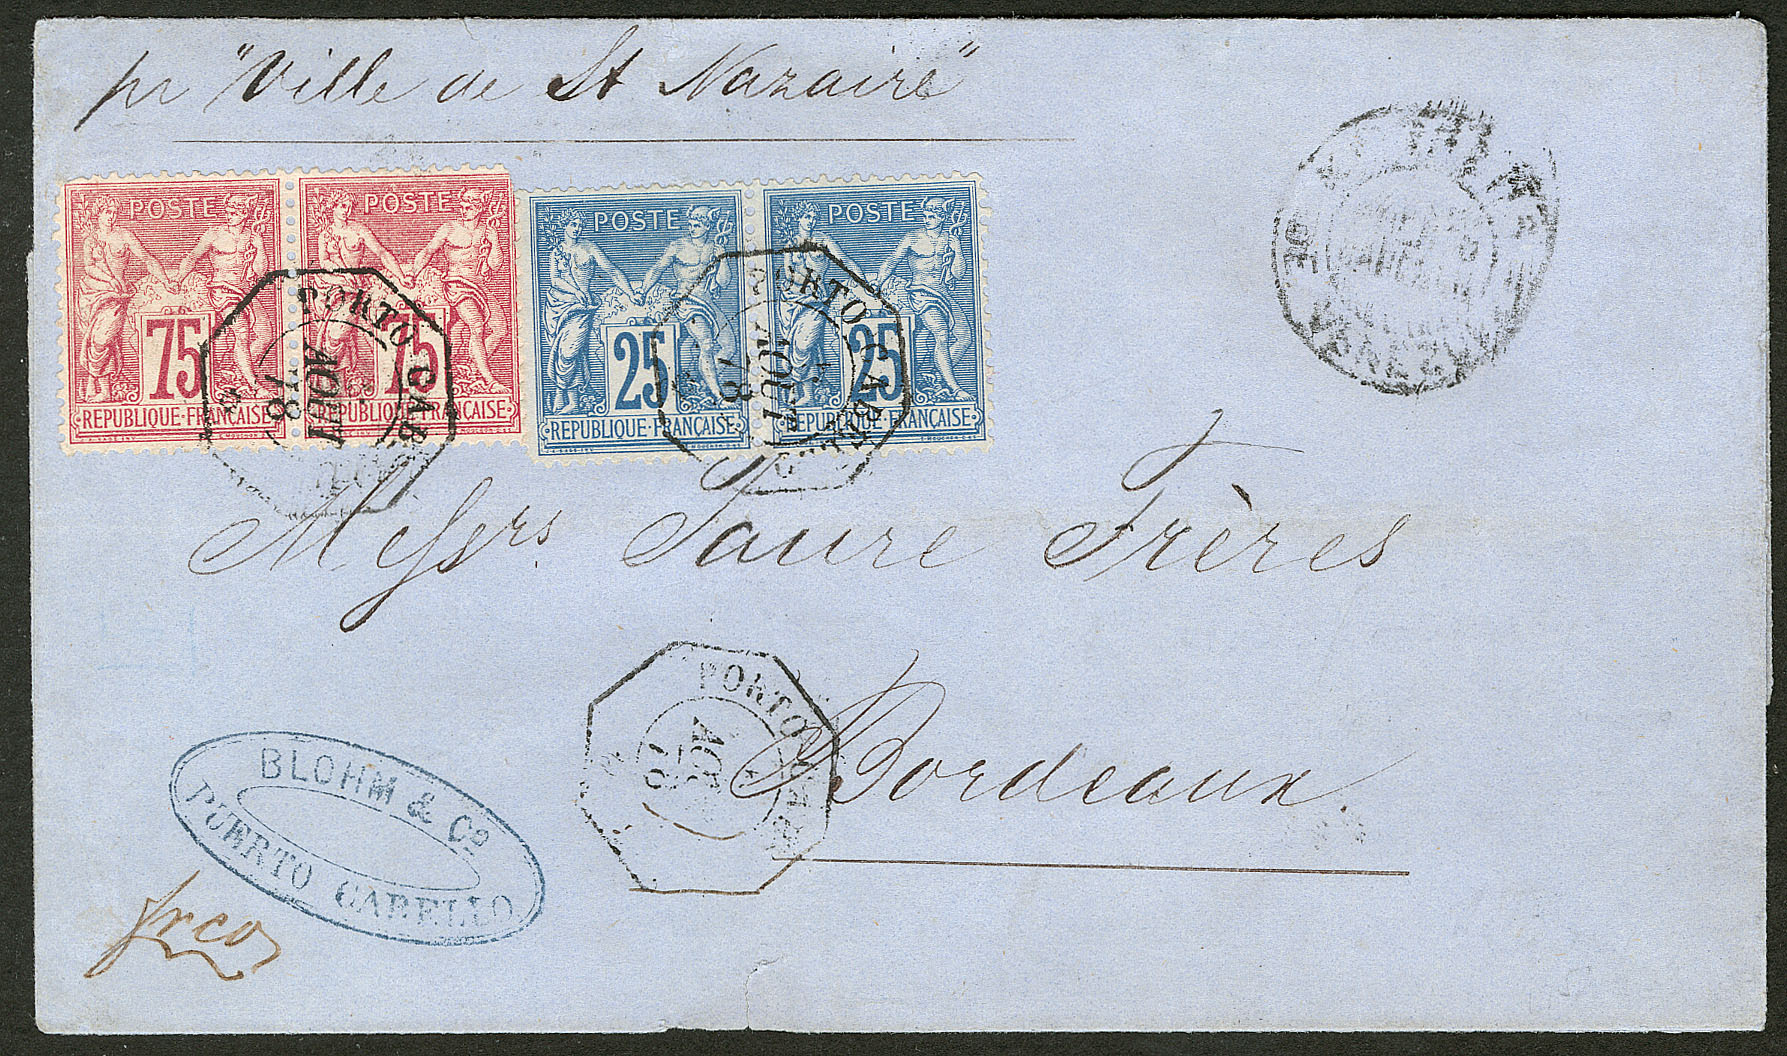 pr "Ville de St Nazaire"
POSTE
75
REPUBLIQUE·FRANÇAISE
POSTE
75
REPUBLIQUE·FRANÇAISE
POSTE
25
REPUBLIQUE·FRANÇAISE
POSTE
25
REPUBLIQUE·FRANÇAISE
PORTO CAB
AOUT
78
PORTO CABELLO
AOUT
78
Messrs. Faure Frères
Bordeaux.
PORTO CAB
BLOHM & Co
PUERTO CABELLO
frco